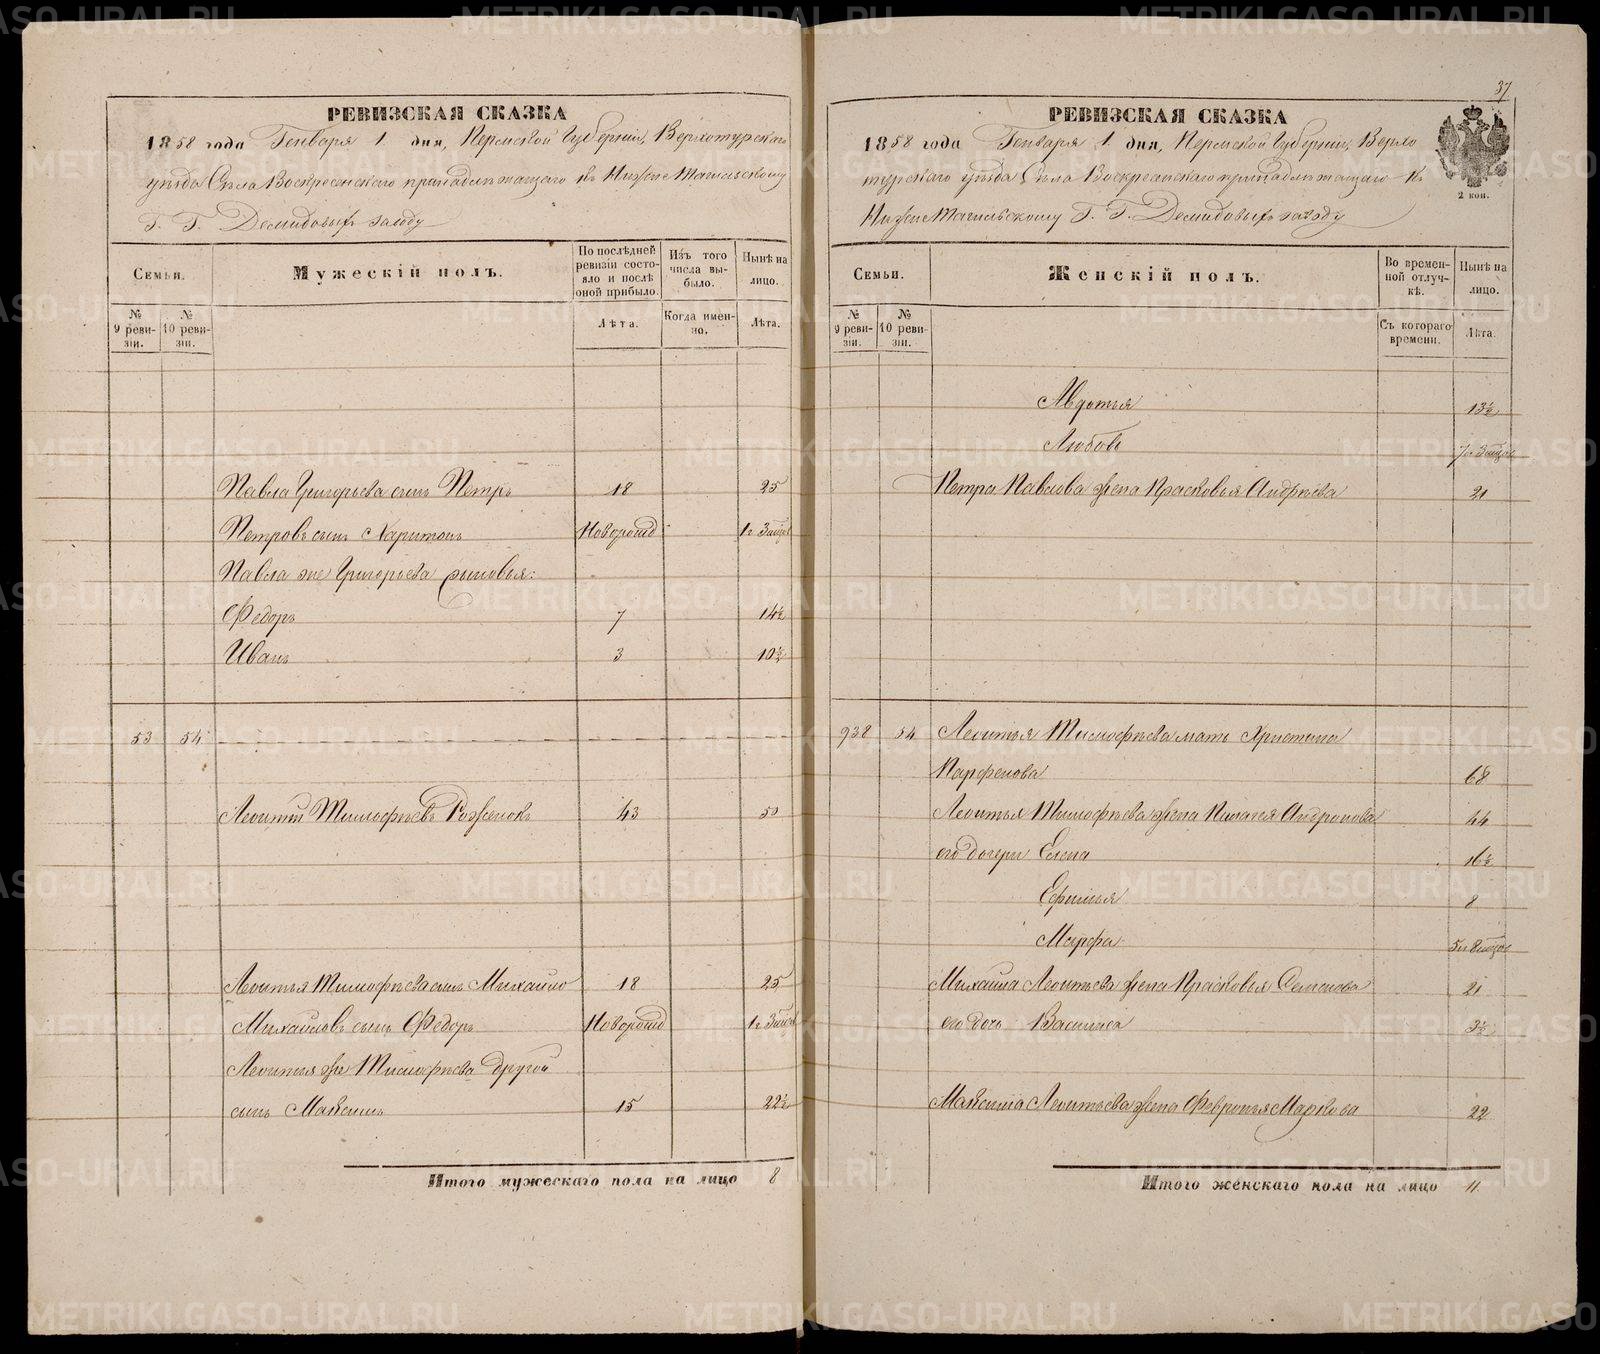 РЕВИЗСКАЯ СКАЗКА
1858 года Генваря 1 дня, Пермской Губернии, Верхотурскаго
уѣзда Села Воскресенскаго принадлѣжащаго къ НижнеТагильскому
Г. Г. Демидовыхъ заводу
Семьи.
Мужескій полъ.
По послѣдней ревизіи состояло и послѣ оной прибыло.
Изъ того числа выбыло.
Нынѣ на лицо.
№ 9 ревизіи.
№ 10 ревизіи.
Лѣта.
Когда именно.
Лѣта.
Павла Григорьева сынъ Петръ 18 25
Петровъ сынъ Харитонъ Новорожд 1 3
Павла же Григорьева сыновья:
Федоръ 7 14½
Иванъ 3 10½
53 54
Леонтій Тимофѣевъ 43 50
Леонтья Тимофѣева сынъ Михайло 18 25
Михайловъ сынъ Федоръ Новорожд 1 3
Леонтья же Тимофѣева другой
сынъ Максимъ 15 22½
Итого мужескаго пола на лицо 8
37
РЕВИЗСКАЯ СКАЗКА
1858 года Генваря 1 дня, Пермской Губернии, Верхо
турскаго уѣзда Села Воскресенскаго принадлѣжащаго къ
НижнеТагильскому Г. Г. Демидовыхъ заводу
2 коп.
Семьи.
Женскій полъ.
Во временной отлучкѣ.
Нынѣ на лицо.
№ 9 ревизіи.
№ 10 ревизіи.
Съ котораго времени.
Лѣта.
Авдотья 13½
Любовь 7 3
Петра Павлова жена Прасковья Андрѣева 21
938 54 Леонтья Тимофѣева мать Христина
Парфенова 68
Леонтья Тимофѣева жена Пилагея Андронова 44
его дочери Елена 16½
Ефимья 8
Марфа 5 8
Михаила Леонтьева жена Прасковья Семенова 21
его дочь Василиса 3½
Максима Леонтьева жена Февронья Маркова 22
Итого женскаго пола на лицо 11
METRIKI.GASO-URAL.RU